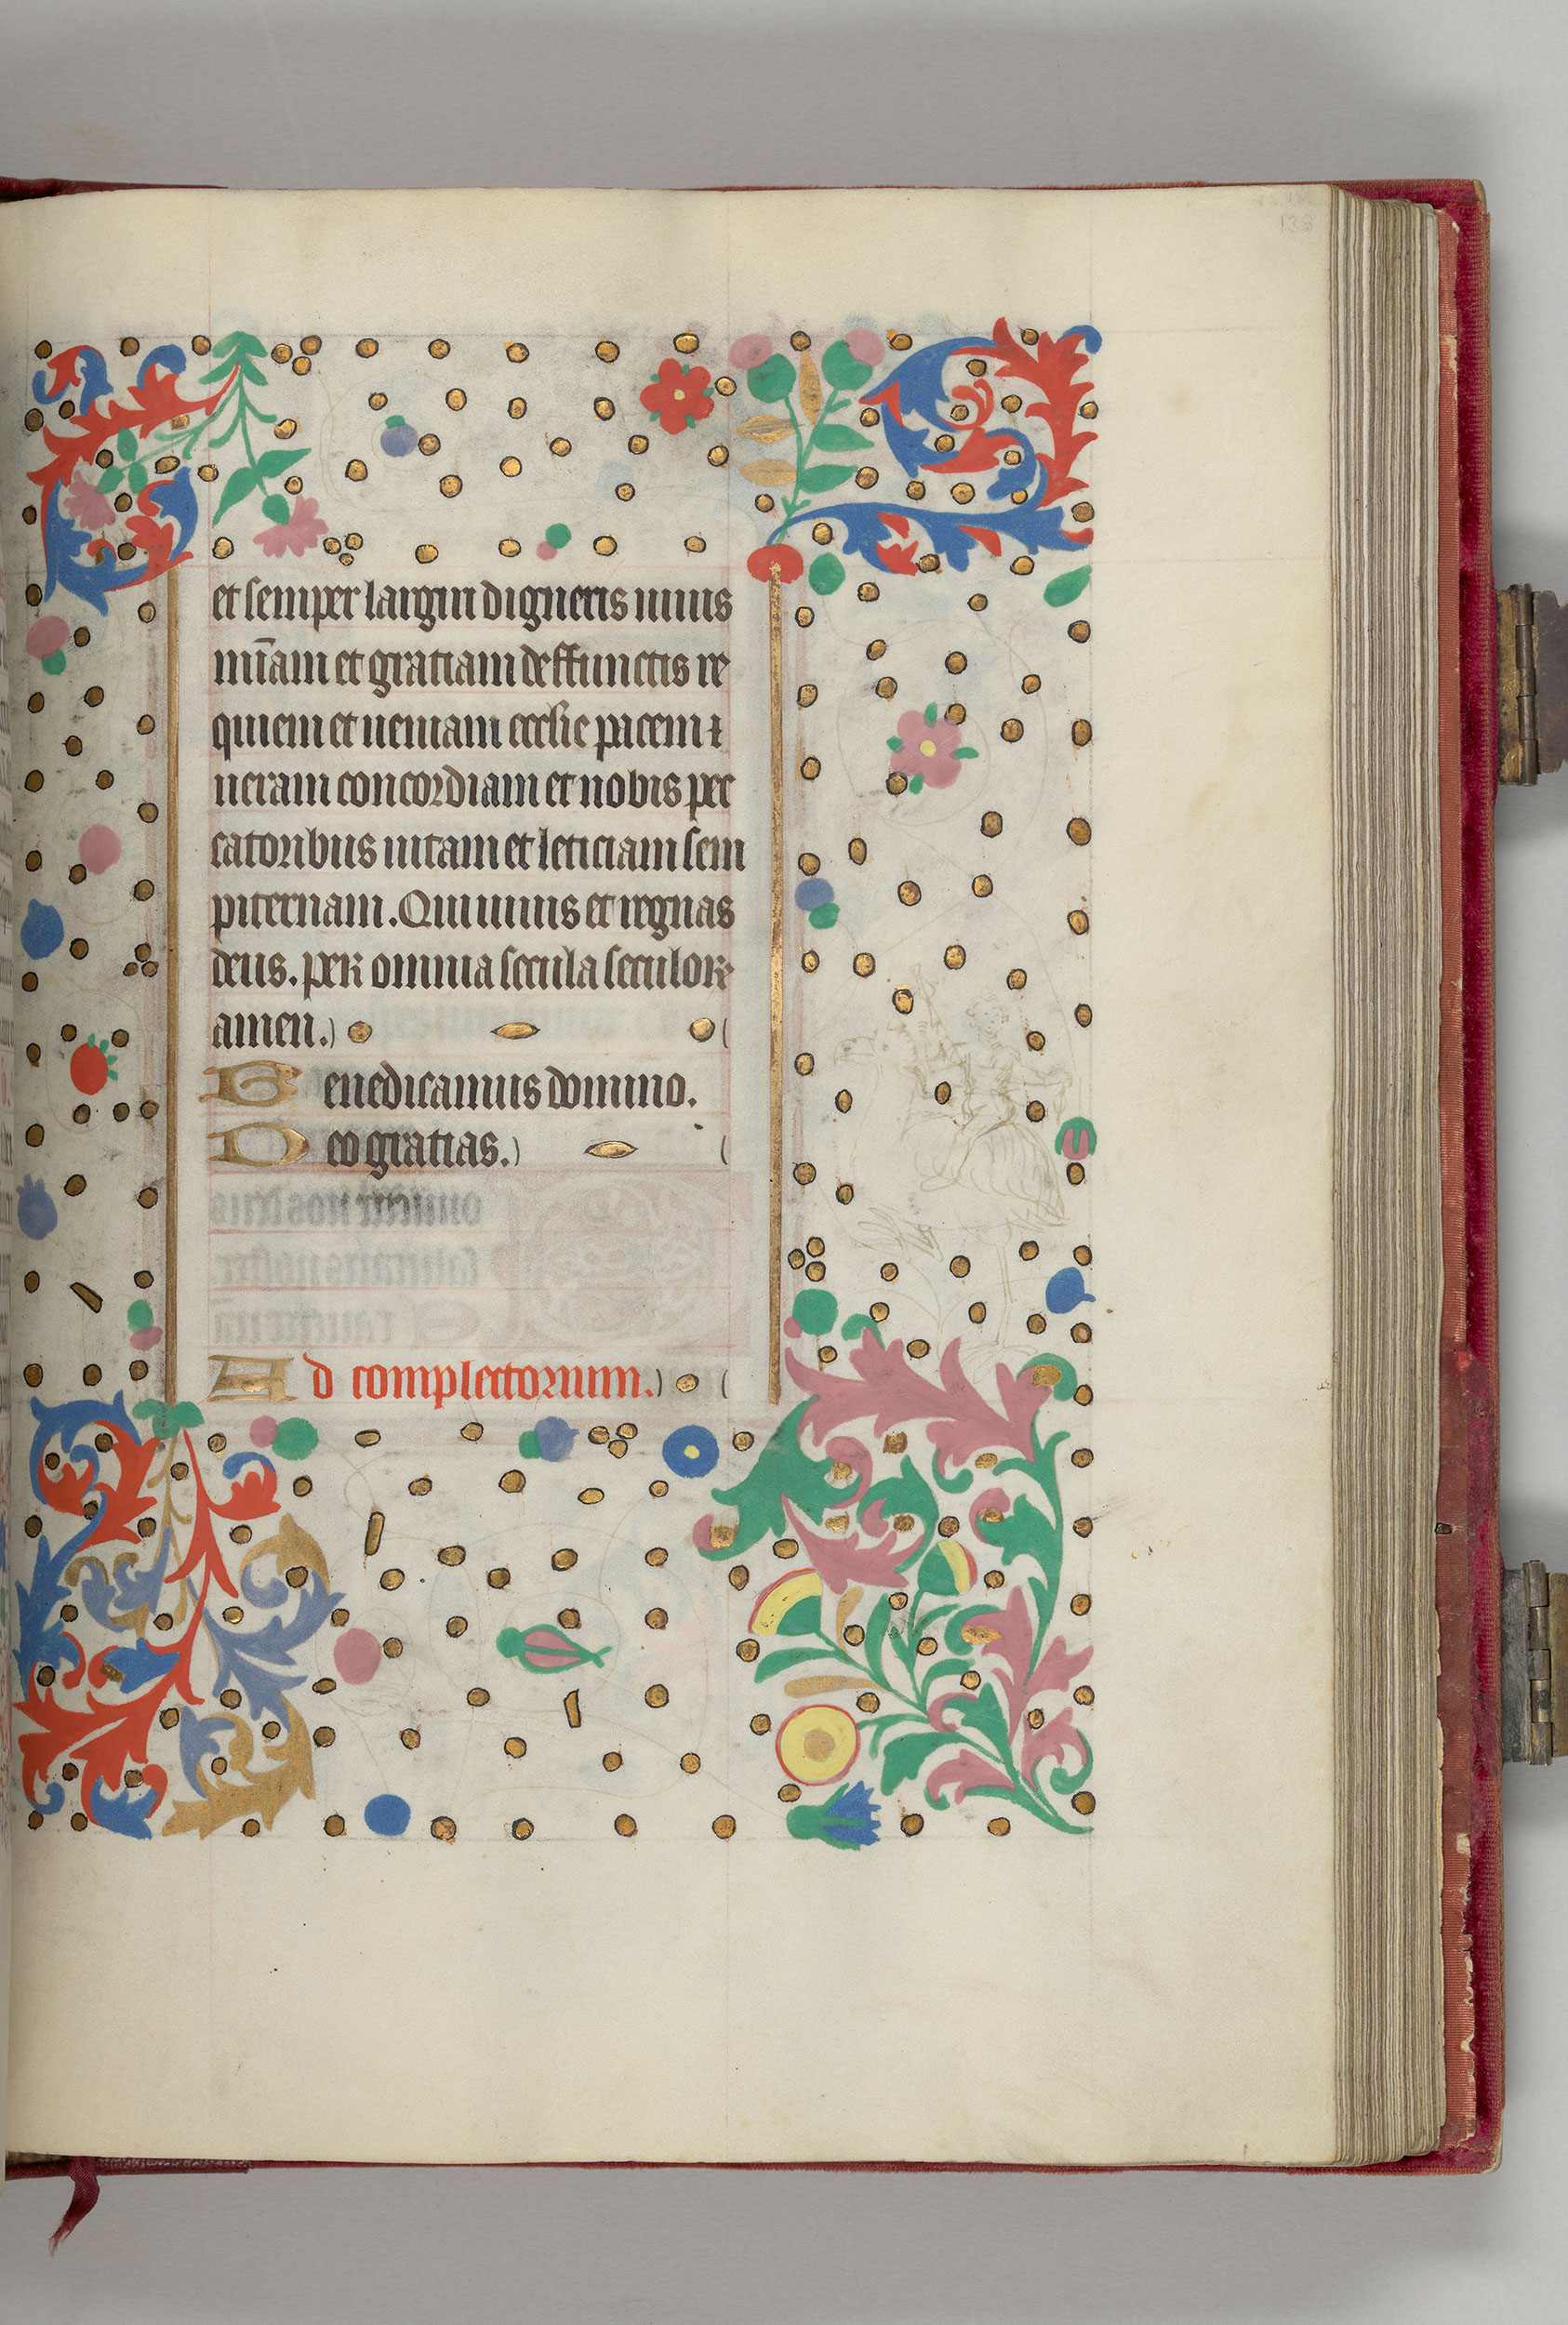 138
et semper largiri digneris uiuis
mīam et gratiam deffunctis re
quiem et ueniam ecclie pacem ⁊
ueram concordiam et nobis pec
catoribus uitam et leticiam sem
piternam. Qui uiuis et regnas
deus. per omnia secula seculoꝝ
amen.
Benedicamus domino.
Deo gratias.
Ad complectorium.